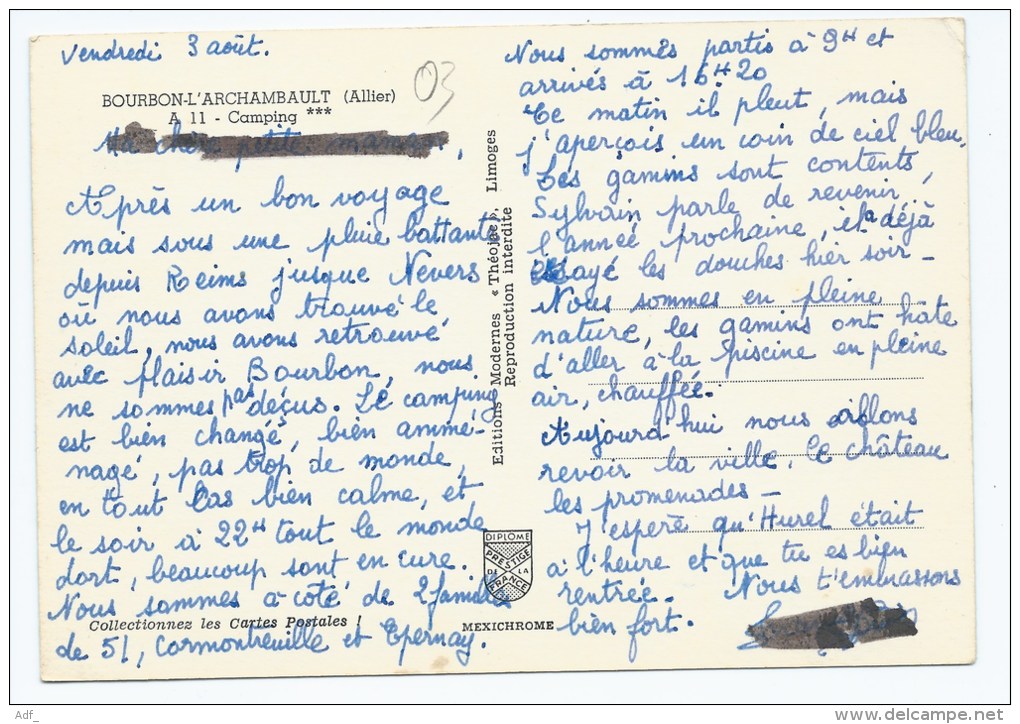 Vendredi 3 août.
03
BOURBON-L'ARCHAMBAULT (Allier)
A 11 - Camping ***
Ma chère petite maman,
Après un bon voyage
mais sous une pluie battante
depuis Reims jusque Nevers
où nous avons trouvé le
soleil, nous avons retrouvé
avec plaisir Bourbon, nous
ne sommes pas déçus. Le camping
est bien changé, bien ammé-
nagé, pas trop de monde,
en tout cas bien calme, et
le soir à 22H tout le monde
dort, beaucoup sont en cure.
Nous sommes à côté de 2 familles
de 51, Cormontreuille et Epernay.
Collectionnez les Cartes Postales !
Editions Modernes « Théojac », Limoges
Reproduction interdite
DIPLOME
PRESTIGE
DE LA
FRANCE
MEXICHROME
Nous sommes partis à 9H et
arrivés à 16H20
Ce matin il pleut, mais
j'aperçois un coin de ciel bleu.
Les gamins sont contents,
Sylvain parle de revenir
l'année prochaine, il a déjà
essayé les douches hier soir -
Nous sommes en pleine
nature, les gamins ont hâte
d'aller à la piscine en pleine
air, chauffée.
Aujourd'hui nous allons
revoir la ville, le château
les promenades -
J'espère qu'Hurel était
à l'heure et que tu es bien
rentrée. Nous t'embrassons
bien fort.
Adf_
www.delcampe.net